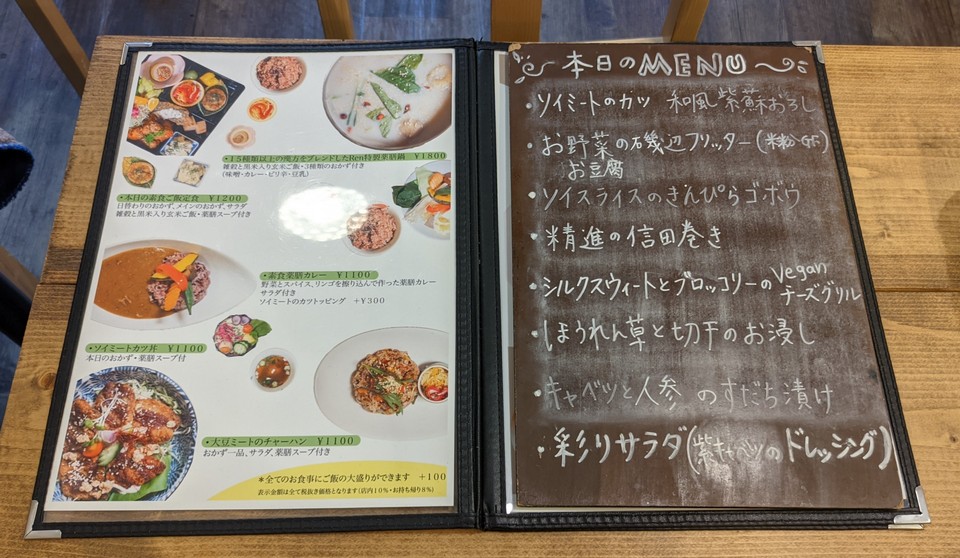 ・15種類以上の漢方をブレンドしたRen特製薬膳鍋 ¥1800
雑穀と黒米入り玄米ご飯・3種類のおかず付き
(味噌・カレー・ピリ辛・豆乳)
・本日の素食ご飯定食 ¥1200
日替わりのおかず、メインのおかず、サラダ
雑穀と黒米入り玄米ご飯・薬膳スープ付き
・素食薬膳カレー ¥1100
野菜とスパイス、リンゴを擦り込んで作った薬膳カレー
サラダ付き
ソイミートのカツトッピング +¥300
・ソイミートカツ丼 ¥1100
本日のおかず・薬膳スープ付
・大豆ミートのチャーハン ¥1100
おかず一品、サラダ、薬膳スープ付き
*全てのお食事にご飯の大盛りができます +100
表示金額は全て税抜き価格となります(店内10%・お持ち帰り8%)
本日のMENU
・ソイミートのカツ 和風紫蘇おろし
・お野菜の磯辺フリッター(米粉・GF)
お豆腐
・ソイスライスのきんぴらゴボウ
・精進の信田巻き
・シルクスウィートとブロッコリーのVegan
チーズグリル
・ほうれん草と切干のお浸し
・キャベツと人参のすだち漬け
・彩りサラダ(紫キャベツのドレッシング)